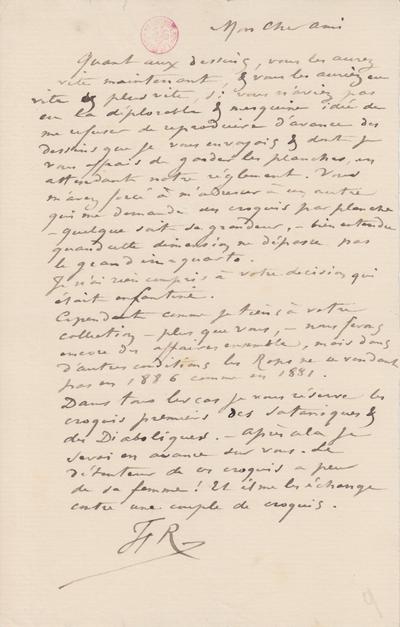 Mon Cher ami
Quant aux dessins, vous les aurez
vite maintenant, & vous les auriez eu
vite & plus vite, si vous n'aviez pas
eu la déplorable & mesquine idée de
me refuser de reproduire d'avance des
dessins que je vous envoyais & dont je
vous offrais de garder les planches, en
attendant notre réglement. Vous
m'avez forcé à m'adresser à un autre
qui me demande un croquis par planche
– quelque soit sa grandeur, – bien entendu
quand cette dimension ne dépasse pas
le grand in-quarto.
Je n'ai rien compris à votre decision qui
était enfantine.
Cependant comme je tiens à votre
collection – plus que vous, – nous ferons
encore des affaires ensemble, mais dans
d'autres conditions les Rops ne se vendant
pas en 1886 comme en 1881.
Dans tous les cas je vous réserve les
croquis premiers des Sataniques &
des Diaboliques. – Après cela je
serai en avance sur vous. Le
détenteur de ces croquis a peur
de sa femme ! Et il me les échange
contre une couple de croquis.
FR